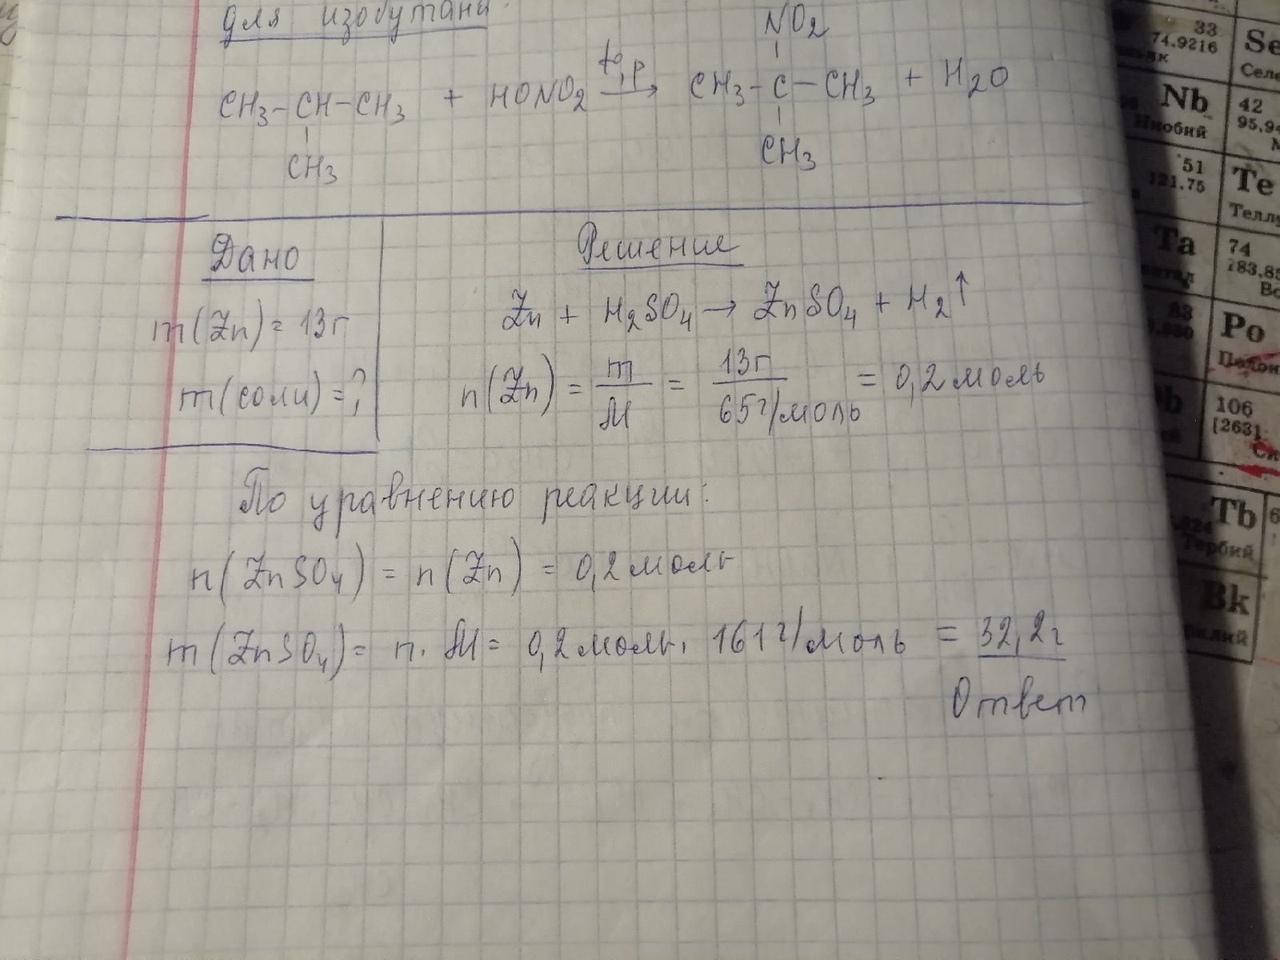 для изобутана
NO2
CH3-CH-CH3 + HONO2 t°,p → CH3-C-CH3 + H2O
CH3
CH3
Дано
m(Zn) = 13г
m(соли) = ?
Решение
Zn + H2SO4 → ZnSO4 + H2↑
n(Zn) = m/M = 13г/65г/моль = 0,2 моль
По уравнению реакции:
n(ZnSO4) = n(Zn) = 0,2 моль
m(ZnSO4) = n · M = 0,2 моль · 161г/моль = 32,2г
Ответ
33
74.9216
Se
Nb
Ниобий
42
51
121.75
Te
Ta
74
Po
106
[263]
Tb
Тербий
Bk